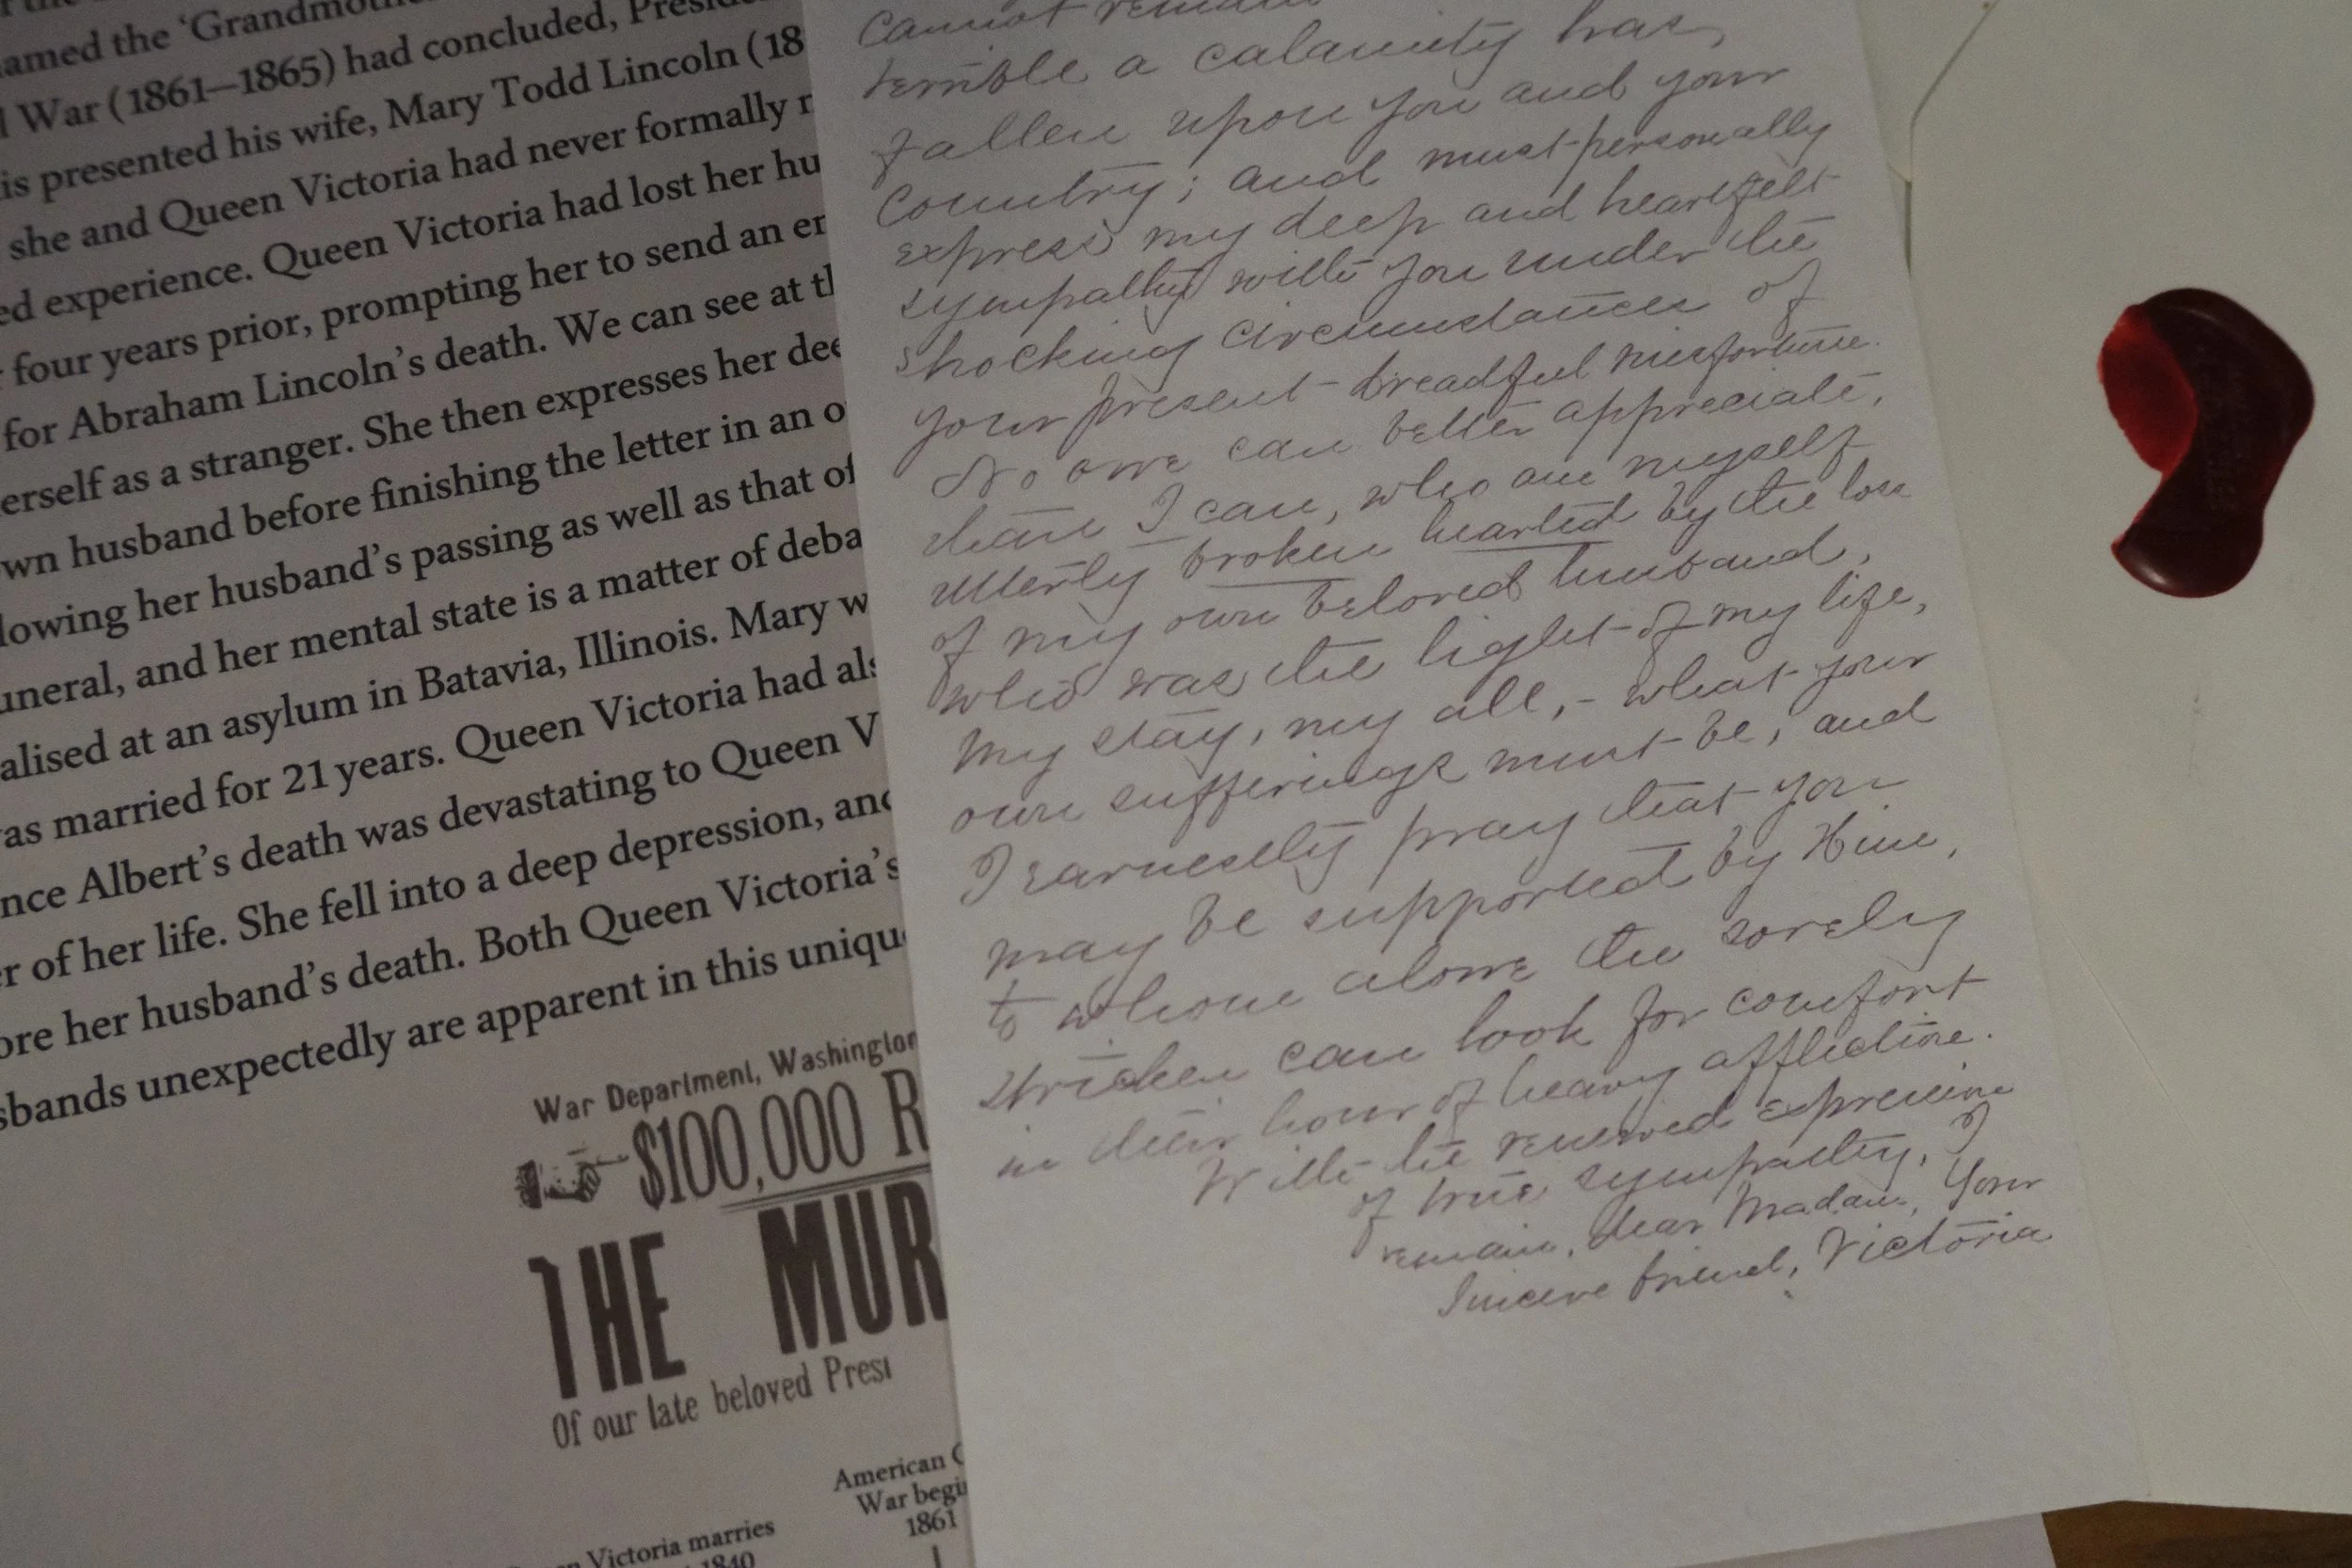 named the ‘Grandmoth
War (1861–1865) had concluded, Preside
is presented his wife, Mary Todd Lincoln (18
she and Queen Victoria had never formally
ed experience. Queen Victoria had lost her hu
four years prior, prompting her to send an
for Abraham Lincoln’s death. We can see at
erself as a stranger. She then expresses her dee
wn husband before finishing the letter in an
lowing her husband’s passing as well as that of
uneral, and her mental state is a matter of deba
alised at an asylum in Batavia, Illinois. Mary w
as married for 21 years. Queen Victoria had als
nce Albert’s death was devastating to Queen V
er of her life. She fell into a deep depression, and
ore her husband’s death. Both Queen Victoria’s
sbands unexpectedly are apparent in this uniqu
War Department, Washington
$100,000 R
THE MUR
Of our late beloved Presi
American C
War begi
1861
Victoria marries
1840
Cannot remain
terrible a calamity has,
fallen upon you and your
Country; and must personally
express my deep and heartfelt
sympathy with you under the
shocking circumstances of
your present dreadful misfortune.
No one can better appreciate,
than I can, who am myself
utterly broken hearted by the loss
of my own beloved husband,
who was the light of my life,
my stay, my all,- what your
own sufferings must be; and
I earnestly pray that you
may be supported by Him,
to whom alone the sorely
stricken can look for comfort
in their hour of heavy affliction.
With the renewed expression
of true sympathy, I
remain, dear Madam, Your
Sincere friend, Victoria